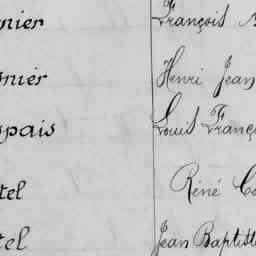 nier François
nier Henri Jean
pais Louis Franç
tel Réné
tel Jean Baptiste